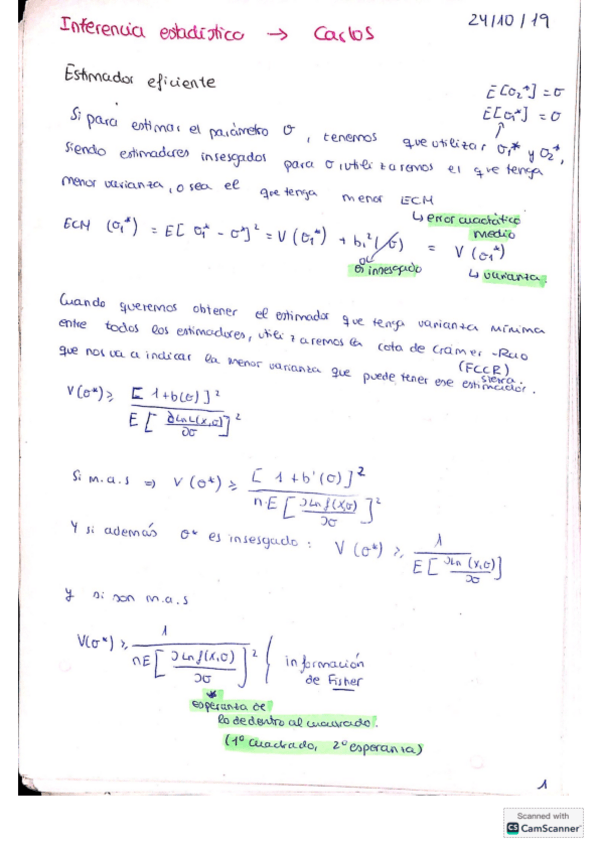 Inferencia estadística → Carlos
24/10/19
Estimador eficiente
E[σ₂*] = σ
E[σ₁*] = σ
Si para estimar el parámetro σ, tenemos que utilizar σ₁* y σ₂*,
siendo estimadores insesgados para σ, utilizaremos el que tenga
menor varianza, o sea el que tenga menor ECM
↳ error cuadrático
medio
ECM (σ₁*) = E[σ₁* - σ*]² = V(σ₁*) + b₁²(σ) = V(σ₁*)
es insesgado
↳ varianza.
Cuando queremos obtener el estimador que tenga varianza mínima
entre todos los estimadores, utilizaremos la cota de Crámer-Rao
(FCCR)
que nos va a indicar la menor varianza que puede tener ese estimador.
V(σ*) ≥ [1+b(σ)]² / E[∂LnL(x,σ)/∂σ]²
Si m.a.s ⇒ V(σ*) ≥ [1+b'(σ)]² / n·E[∂Ln f(x,σ)/∂σ]²
Y si además σ* es insesgado: V(σ*) ≥ 1 / E[∂Ln(x,σ)/∂σ]
Y si son m.a.s
V(σ*) ≥ 1 / nE[∂Ln f(x,σ)/∂σ]² { información
de Fisher
*
esperanza de
lo de dentro al cuadrado.
(1º cuadrado, 2º esperanza)
1
Scanned with
CS CamScanner